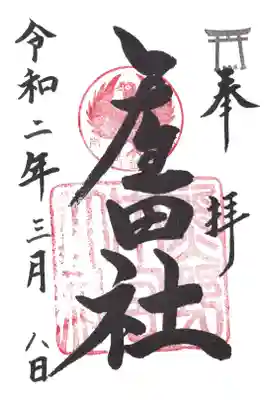 奉拝
産田社
令和二年三月八日